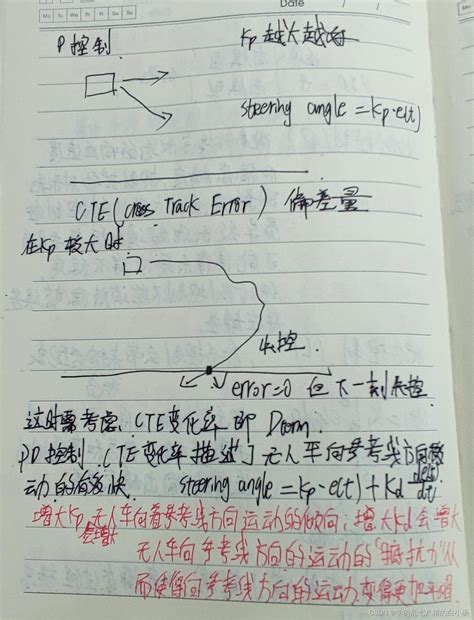 Date
P控制
Kp越大越好
steering angle = Kp·e(t)
CTE (Cross Track Error) 偏差量
在Kp较大时
失控.
error=0 但下一刻失控
这时需考虑 CTE变化率 即 Dterm.
PD控制 CTE变化率描述了无人车向参考线方向移
动的有多快. steering angle = Kp·e(t) + Kd de(t)/dt
增大Kp, 无人车向着参考线方向运动的倾向; 增大Kd会增大
会增大
无人车向参考线方向的运动的"抵抗力"从
而使得向参考线方向的运动变得更加平滑.